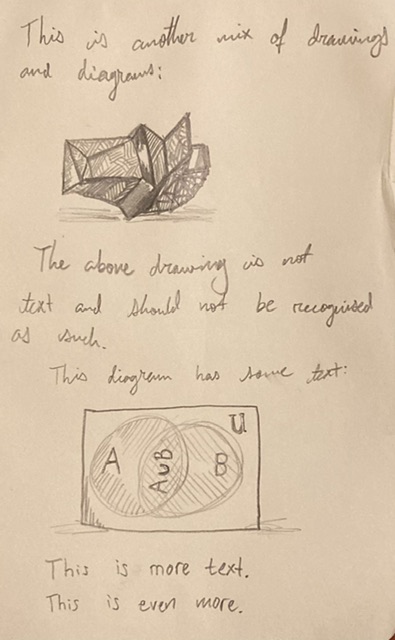 This is another mix of drawings
and diagrams:
The above drawing is not
text and should not be recognised
as such.
This diagram has some text:
U
A
A∪B
B
This is more text.
This is even more.